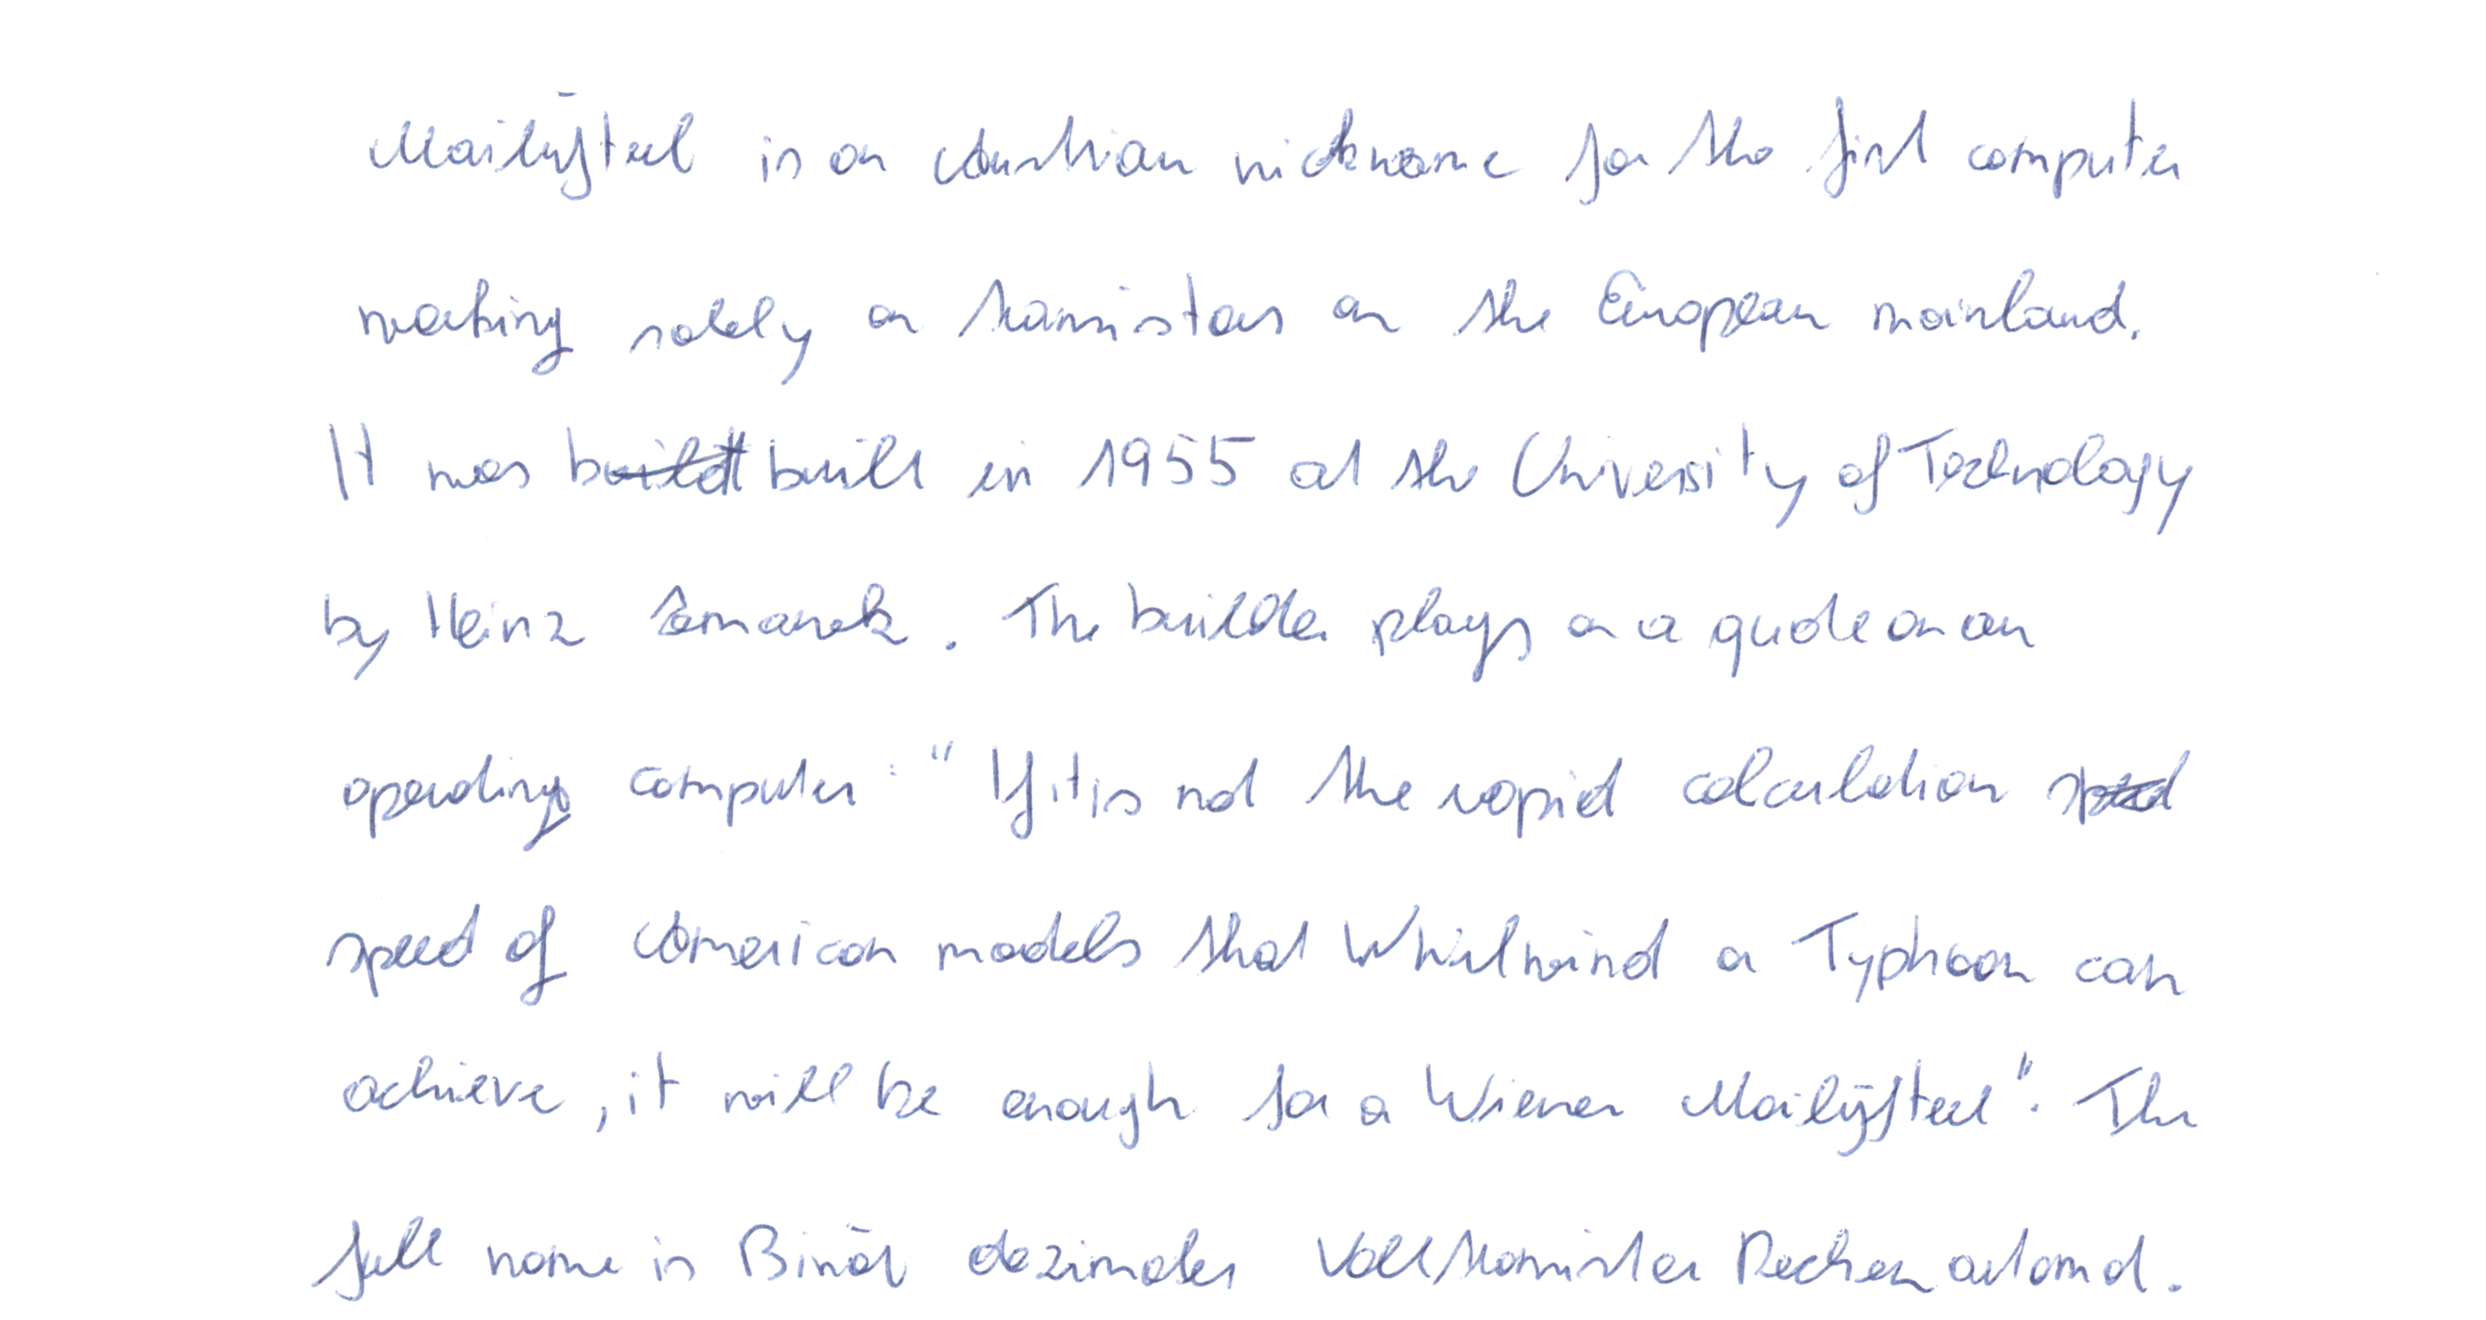 Mailüfterl is an Austrian nickname for the first computer
working solely on transistors on the European mainland.
It was built in 1955 at the University of Technology
by Heinz Zemanek. The builder plays on a quote on an
operating computer: "If it is not the rapid calculation
speed of American models that Whirlwind or Typhoon can
achieve, it will be enough for a Wiener Mailüfterl". The
full name is Binär dezimaler Volltransistor Rechenautomat.